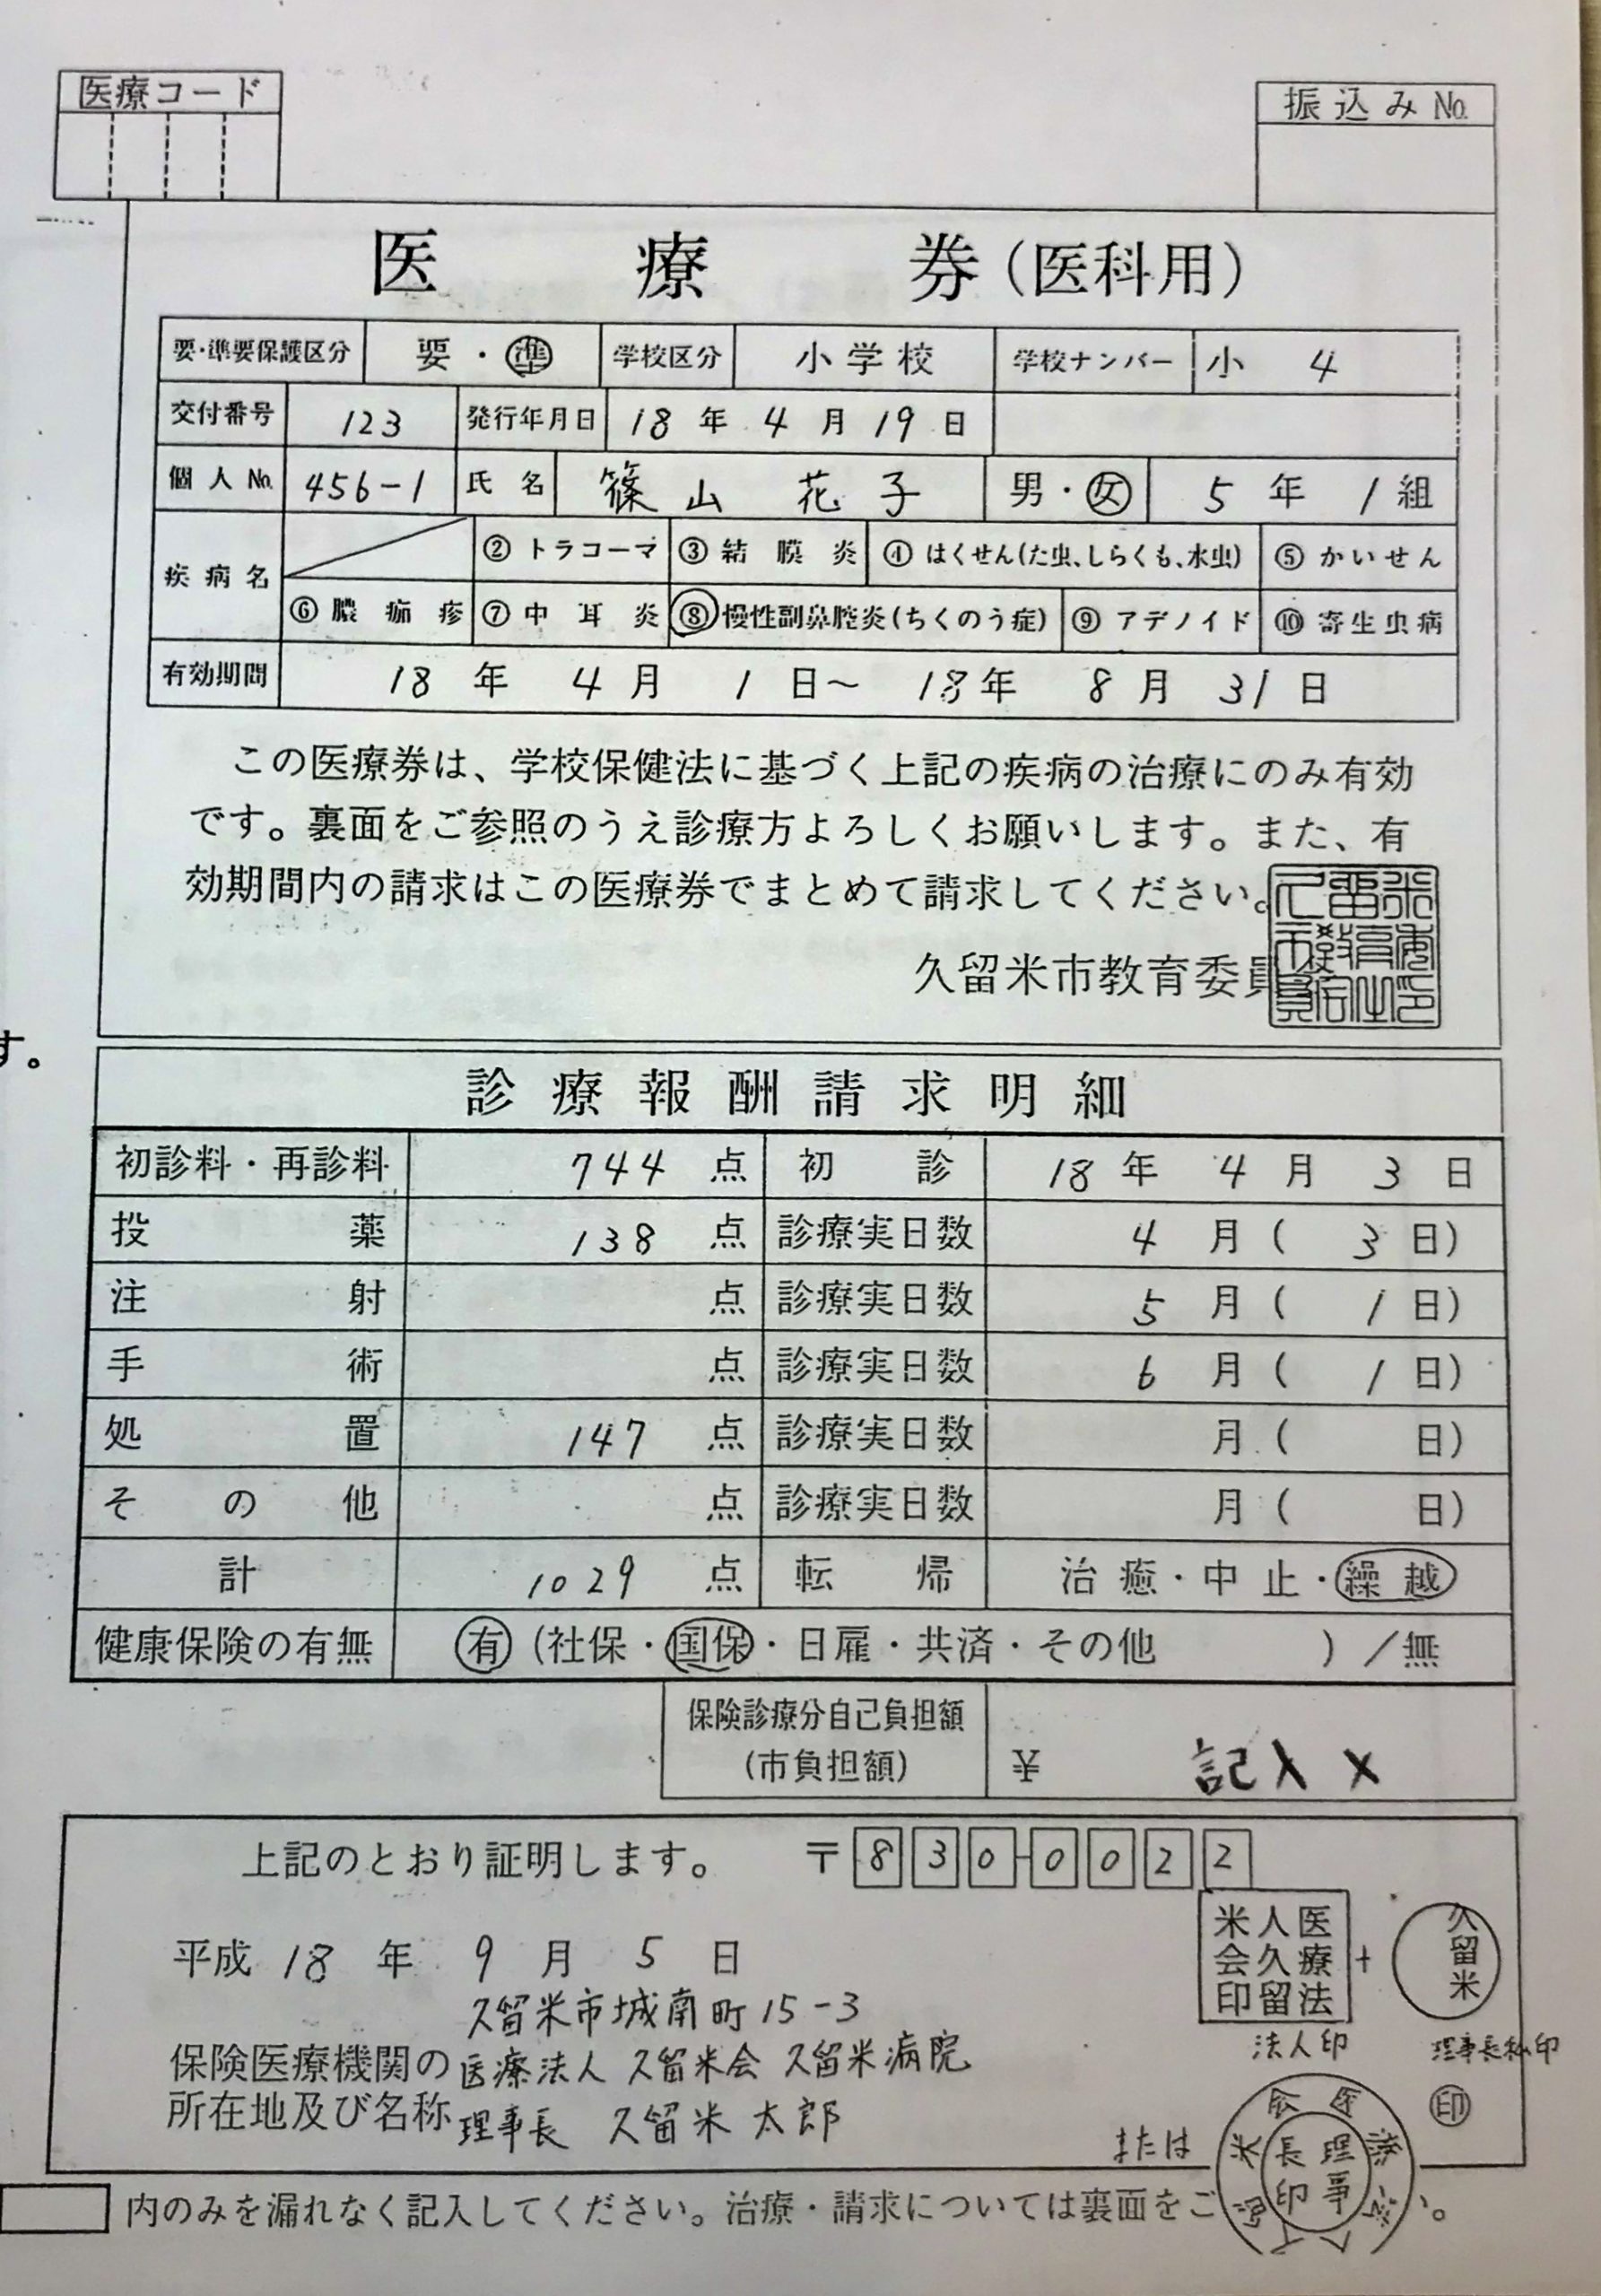 医療コード
振込み№
医療券(医科用)
要・準要保護区分 要・準 学校区分 小学校 学校ナンバー 小 4
交付番号 123 発行年月日 18年4月19日
個人№ 456-1 氏名 篠山 花子 男・女 5年1組
疾病名 ②トラコーマ ③結膜炎 ④はくせん(た虫、しらくも、水虫) ⑤かいせん
⑥膿痂疹 ⑦中耳炎 ⑧慢性副鼻腔炎(ちくのう症) ⑨アデノイド ⑩寄生虫病
有効期間 18年4月1日～18年8月31日
この医療券は、学校保健法に基づく上記の疾病の治療にのみ有効
です。裏面をご参照のうえ診療方よろしくお願いします。また、有
効期間内の請求はこの医療券でまとめて請求してください。
久留米市教育委員
す。
診療報酬請求明細
初診料・再診料 744点 初診 18年4月3日
投薬 138点 診療実日数 4月(3日)
注射 点 診療実日数 5月(1日)
手術 点 診療実日数 6月(1日)
処置 147点 診療実日数 月(日)
その他 点 診療実日数 月(日)
計 1029点 転帰 治癒・中止・繰越
健康保険の有無 有(社保・国保・日雇・共済・その他 )／無
保険診療分自己負担額
(市負担額) ¥ 記入×
上記のとおり証明します。 〒830-0022
医療法人久留米会印 + 久留米
平成18年9月5日
法人印 理事長私印
久留米市城南町15-3
保険医療機関の 医療法人 久留米会 久留米病院
所在地及び名称 理事長 久留米 太郎 印
または 理事長印
内のみを漏れなく記入してください。治療・請求については裏面をご